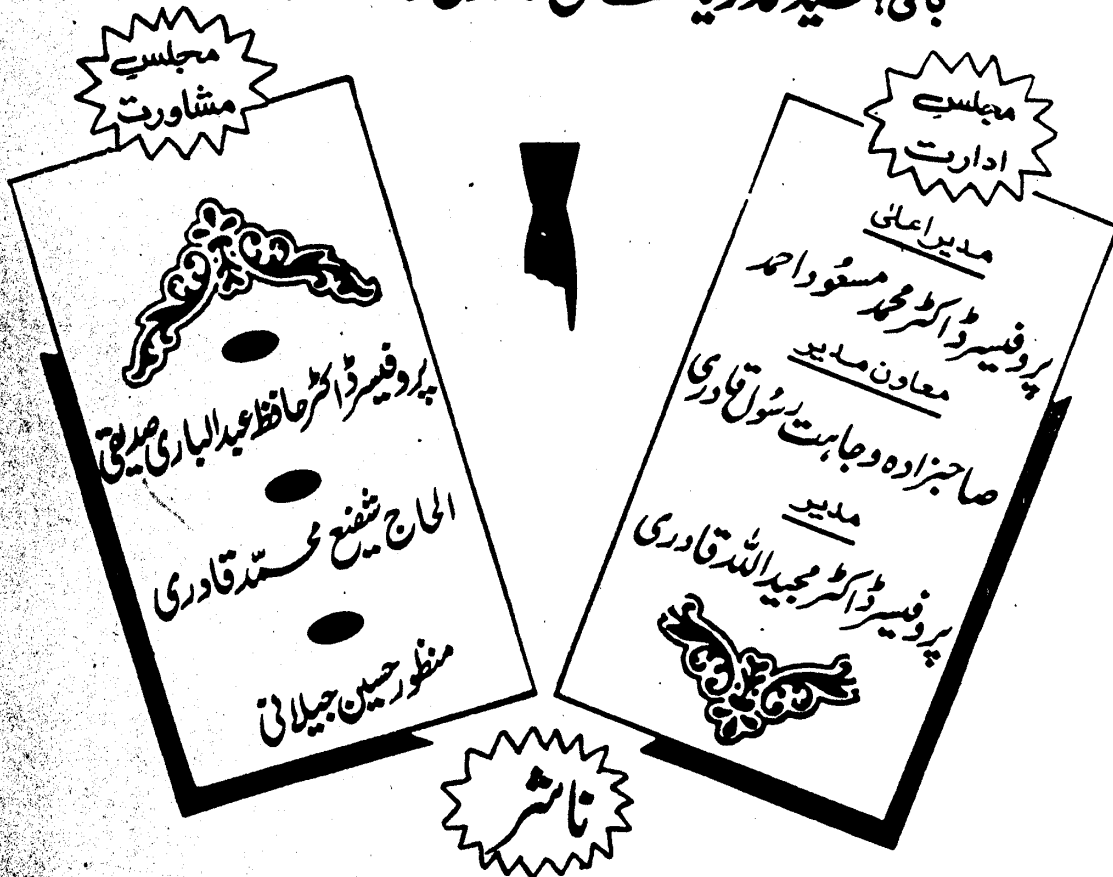 بانی: سید محمد ریاست علی قادری
مجلسِ
ادارت
مدیر اعلیٰ
پروفیسر ڈاکٹر محمد مسعود احمد
معاون مدیر
صاحبزادہ وجاہت رسول قادری
مدیر
پروفیسر ڈاکٹر مجید اللہ قادری
مجلسِ
مشاورت
پروفیسر ڈاکٹر حافظ عبدالباری صدیقی
الحاج شفیع محمد قادری
منظور حسین جیلانی
ناشر